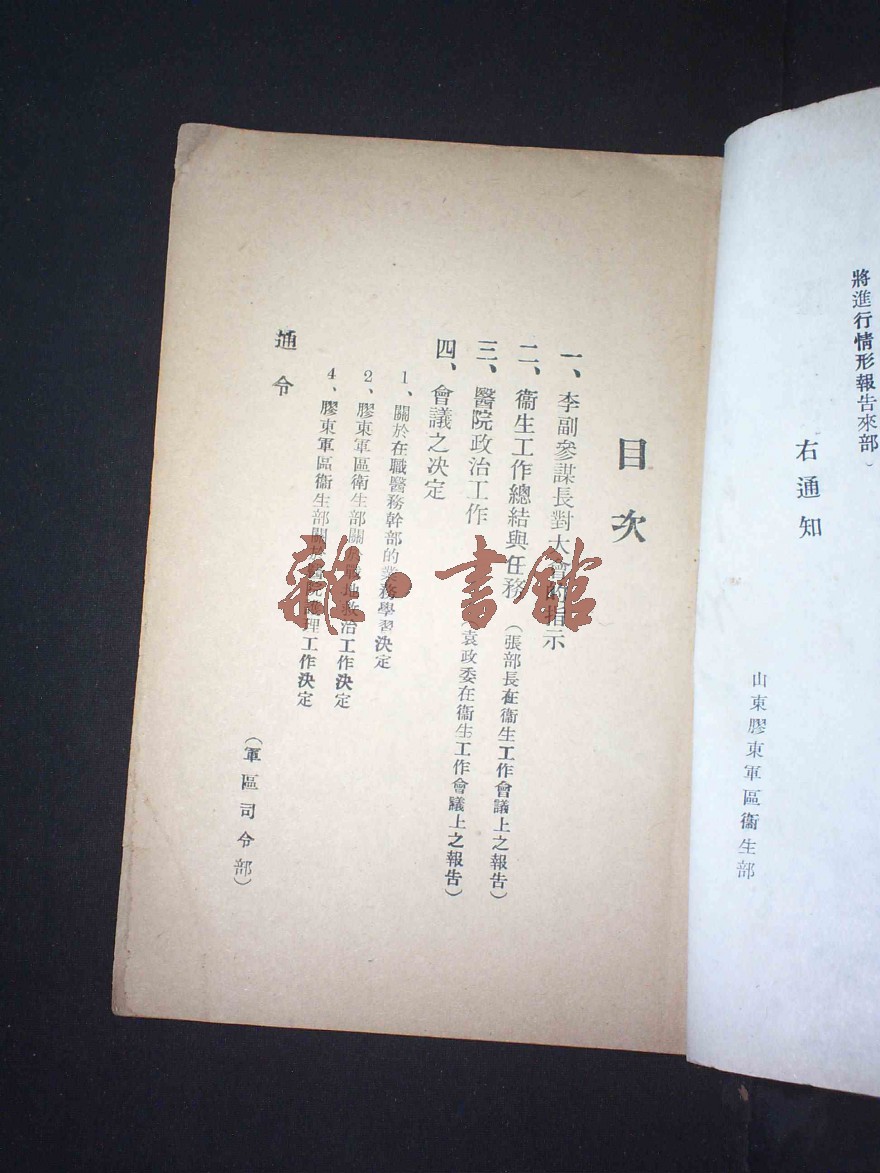 將進行情形報告來部）
右通知
山東膠東軍區衞生部
目次
一、李副參謀長對大會的指示
二、衞生工作總結與任務（張部長在衞生工作會議上之報告）
三、醫院政治工作（袁政委在衞生工作會議上之報告）
四、會議之决定
1、關於在職醫務幹部的業務學習決定
2、膠東軍區衞生部關於戰地救治工作決定
4、膠東軍區衞生部關於醫院管理工作決定
通令（軍區司令部）
雜·書館